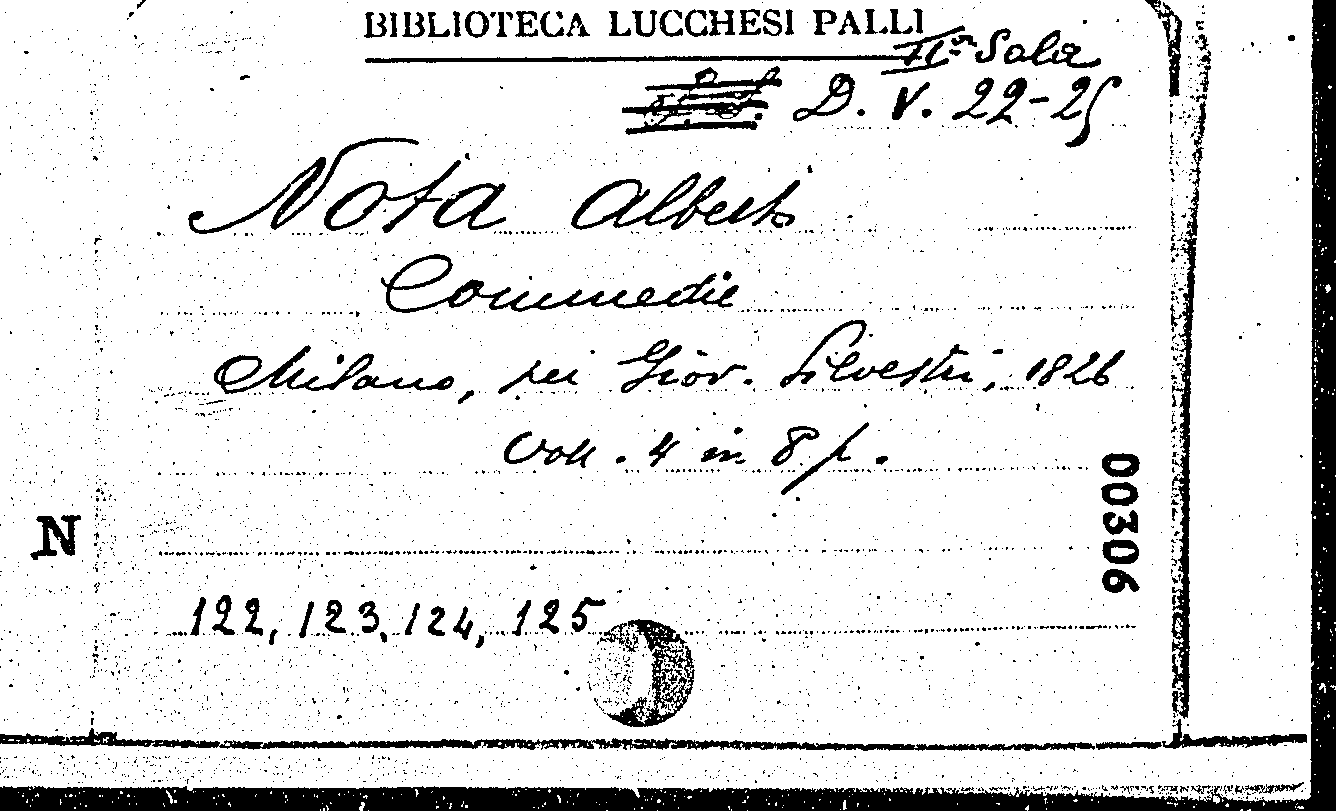 BIBLIOTECA LUCCHESI PALLI
IIª Sala
D. V. 22-25
Nota Alberto
Commedie
Milano, per Giov. Silvestri, 1826
Voll. 4 in 8 p.
00306
N
122, 123, 124, 125